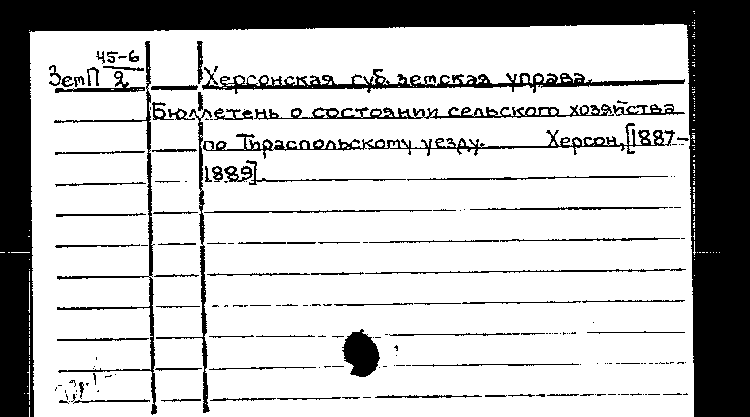 45-6
ЗемП 2 Херсонская губ. земская управа.
Бюллетень о состоянии сельского хозяйства
по Тираспольскому уезду. Херсон, [1887-
1889].